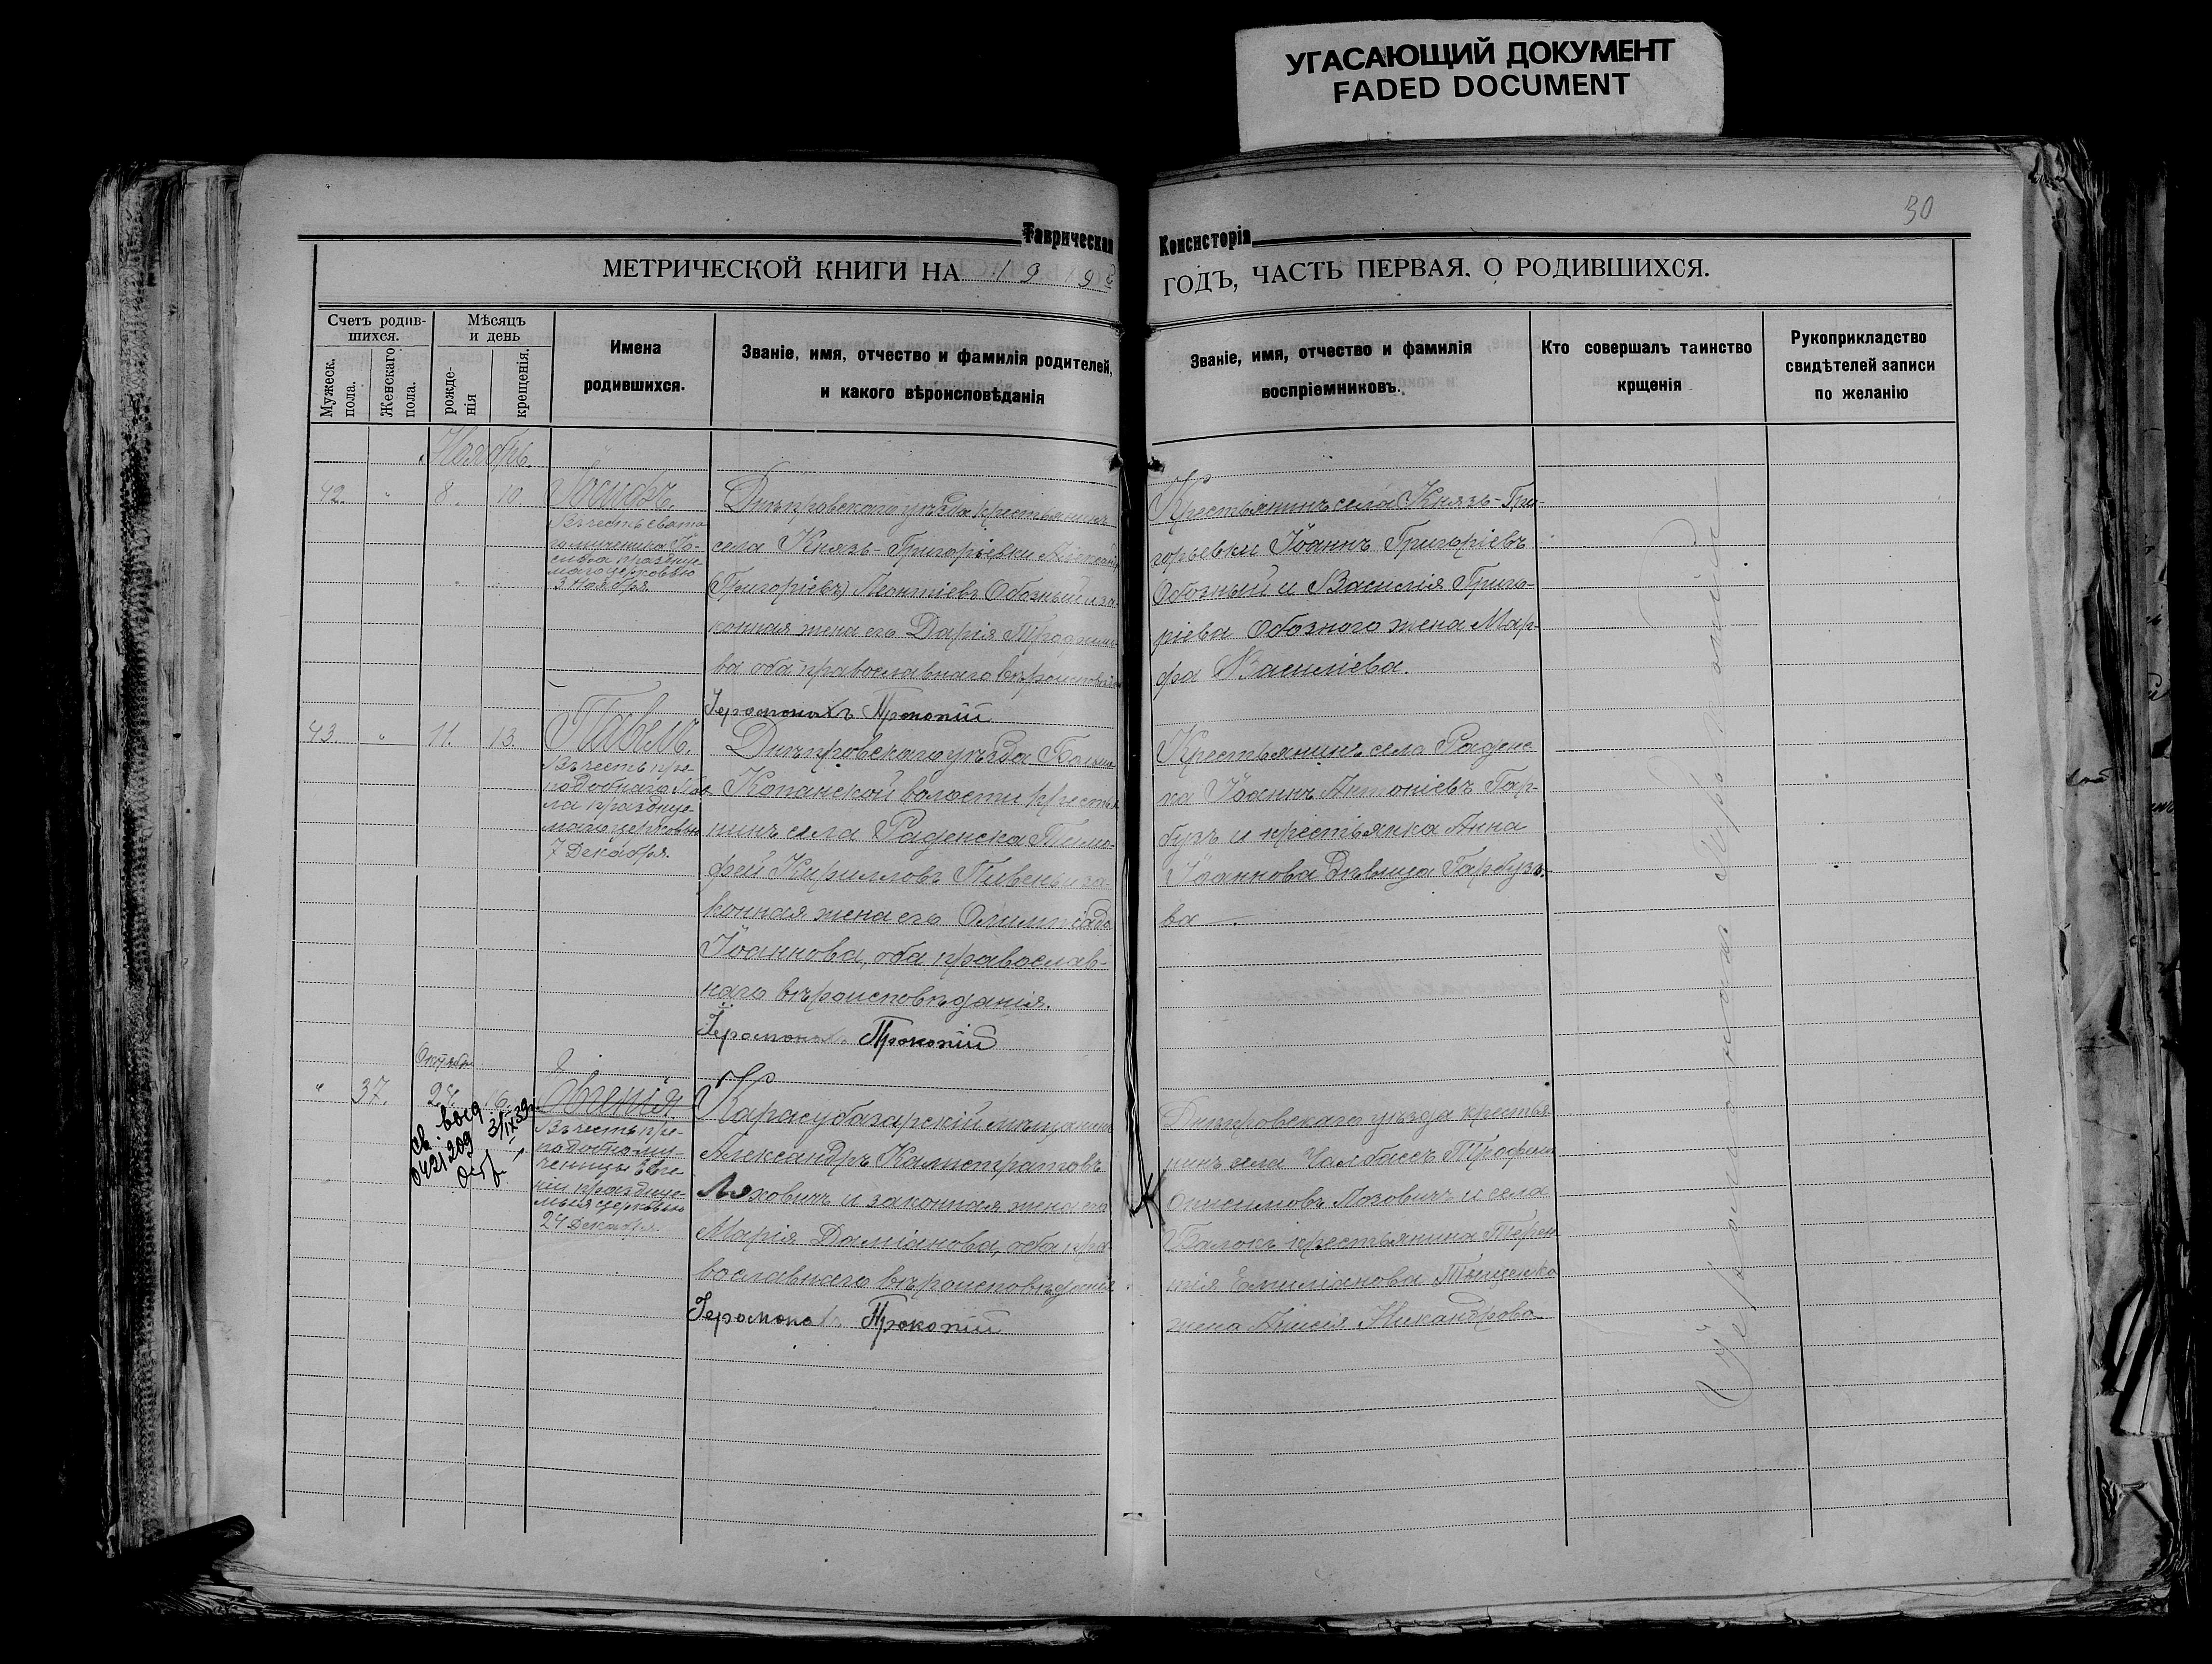 УГАСАЮЩИЙ ДОКУМЕНТ
FADED DOCUMENT
30
Таврическая Консисторія
МЕТРИЧЕСКОЙ КНИГИ НА 191 ГОДЪ, ЧАСТЬ ПЕРВАЯ. О РОДИВШИХСЯ.
Счетъ родив-
шихся.
Мужеск. пола.
Женскаго пола.
Мѣсяцъ
и день
рожде-
нія
крещенія.
Имена
родившихся.
Званіе, имя, отчество и фамилія родителей,
и какого вѣроисповѣданія
Званіе, имя, отчество и фамилія
воспріемниковъ.
Кто совершалъ таинство
крщенія
Рукоприкладство
свидѣтелей записи
по желанію
Ноябрь.
42. " 8. 10.
Іосифъ.
Въ честь свято
мученика Іо-
сифа празднуе-
маго церковью
3 Ноября.
Днѣпровскаго уѣзда крестьянинъ
села Князь-Григорьевки
(Григоріевъ) Леонтіевъ Обозный и за-
конная жена его Дарія Трофимо-
ва оба православнаго вѣроисповѣд
Іеромонахъ Прокопій
Крестьянинъ села Князь-Гри-
горьевки Іоаннъ Григоріевъ
Обозный и Василія Григо-
ріева Обознаго жена Мар-
фа Василіева.
43. " 11. 13.
Павелъ.
Въ честь пре-
подобнаго Пав-
ла празднуе-
маго церковью
7 Декабря.
Днѣпровскаго уѣзда Больше
Копанской волости крестья
нинъ села Раденска Тимо-
фей Кирилловъ Пивень и за-
конная жена его Олимпіада
Іоаннова, оба православ-
наго вѣроисповѣданія.
Іеромонахъ Прокопій
Крестьянинъ села Раденс
ка Іоаннъ Антоніевъ Гар-
бузъ и крестьянка Анна
Іоаннова дѣвица Гарбузо-
ва
Октябрь
" 37. 24. 16.
св. выд.
042 1209
3/IX 39г.
Евгенія.
Въ честь пре-
подобному-
ченицы Евге-
ніи празднуе-
мыя церковью
24 Декабря.
Карасубазарскій мѣщанинъ
Александръ Калистратовъ
Ляховичъ и законная жена его
Марія Даміанова, оба пра
вославнаго вѣроисповѣданія
Іеромонахъ Прокопій
Днѣпровскаго уѣзда крестья
нинъ села Чалбассъ Трофимъ
Онисимовъ Лозовичъ и села
Балокъ крестьянина Терен
тія Емиліанова Тищенко
жена Анисія Никандрова.
Іеромонахъ Прокопій